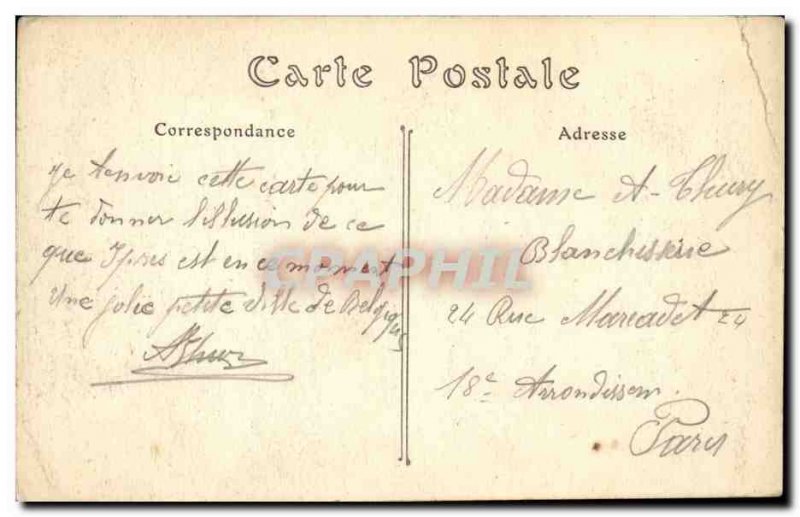 Carte Postale
Correspondance
Je tenvoie cette carte pour
te donner lillusion de ce
que Ypres est en ce moment
Une jolie petite ville de Belgique
Adresse
Madame A-Thury
Blanchisserie
24 Rue Marcadet 24
18e Arrondissem.
Paris
CPAPHIL